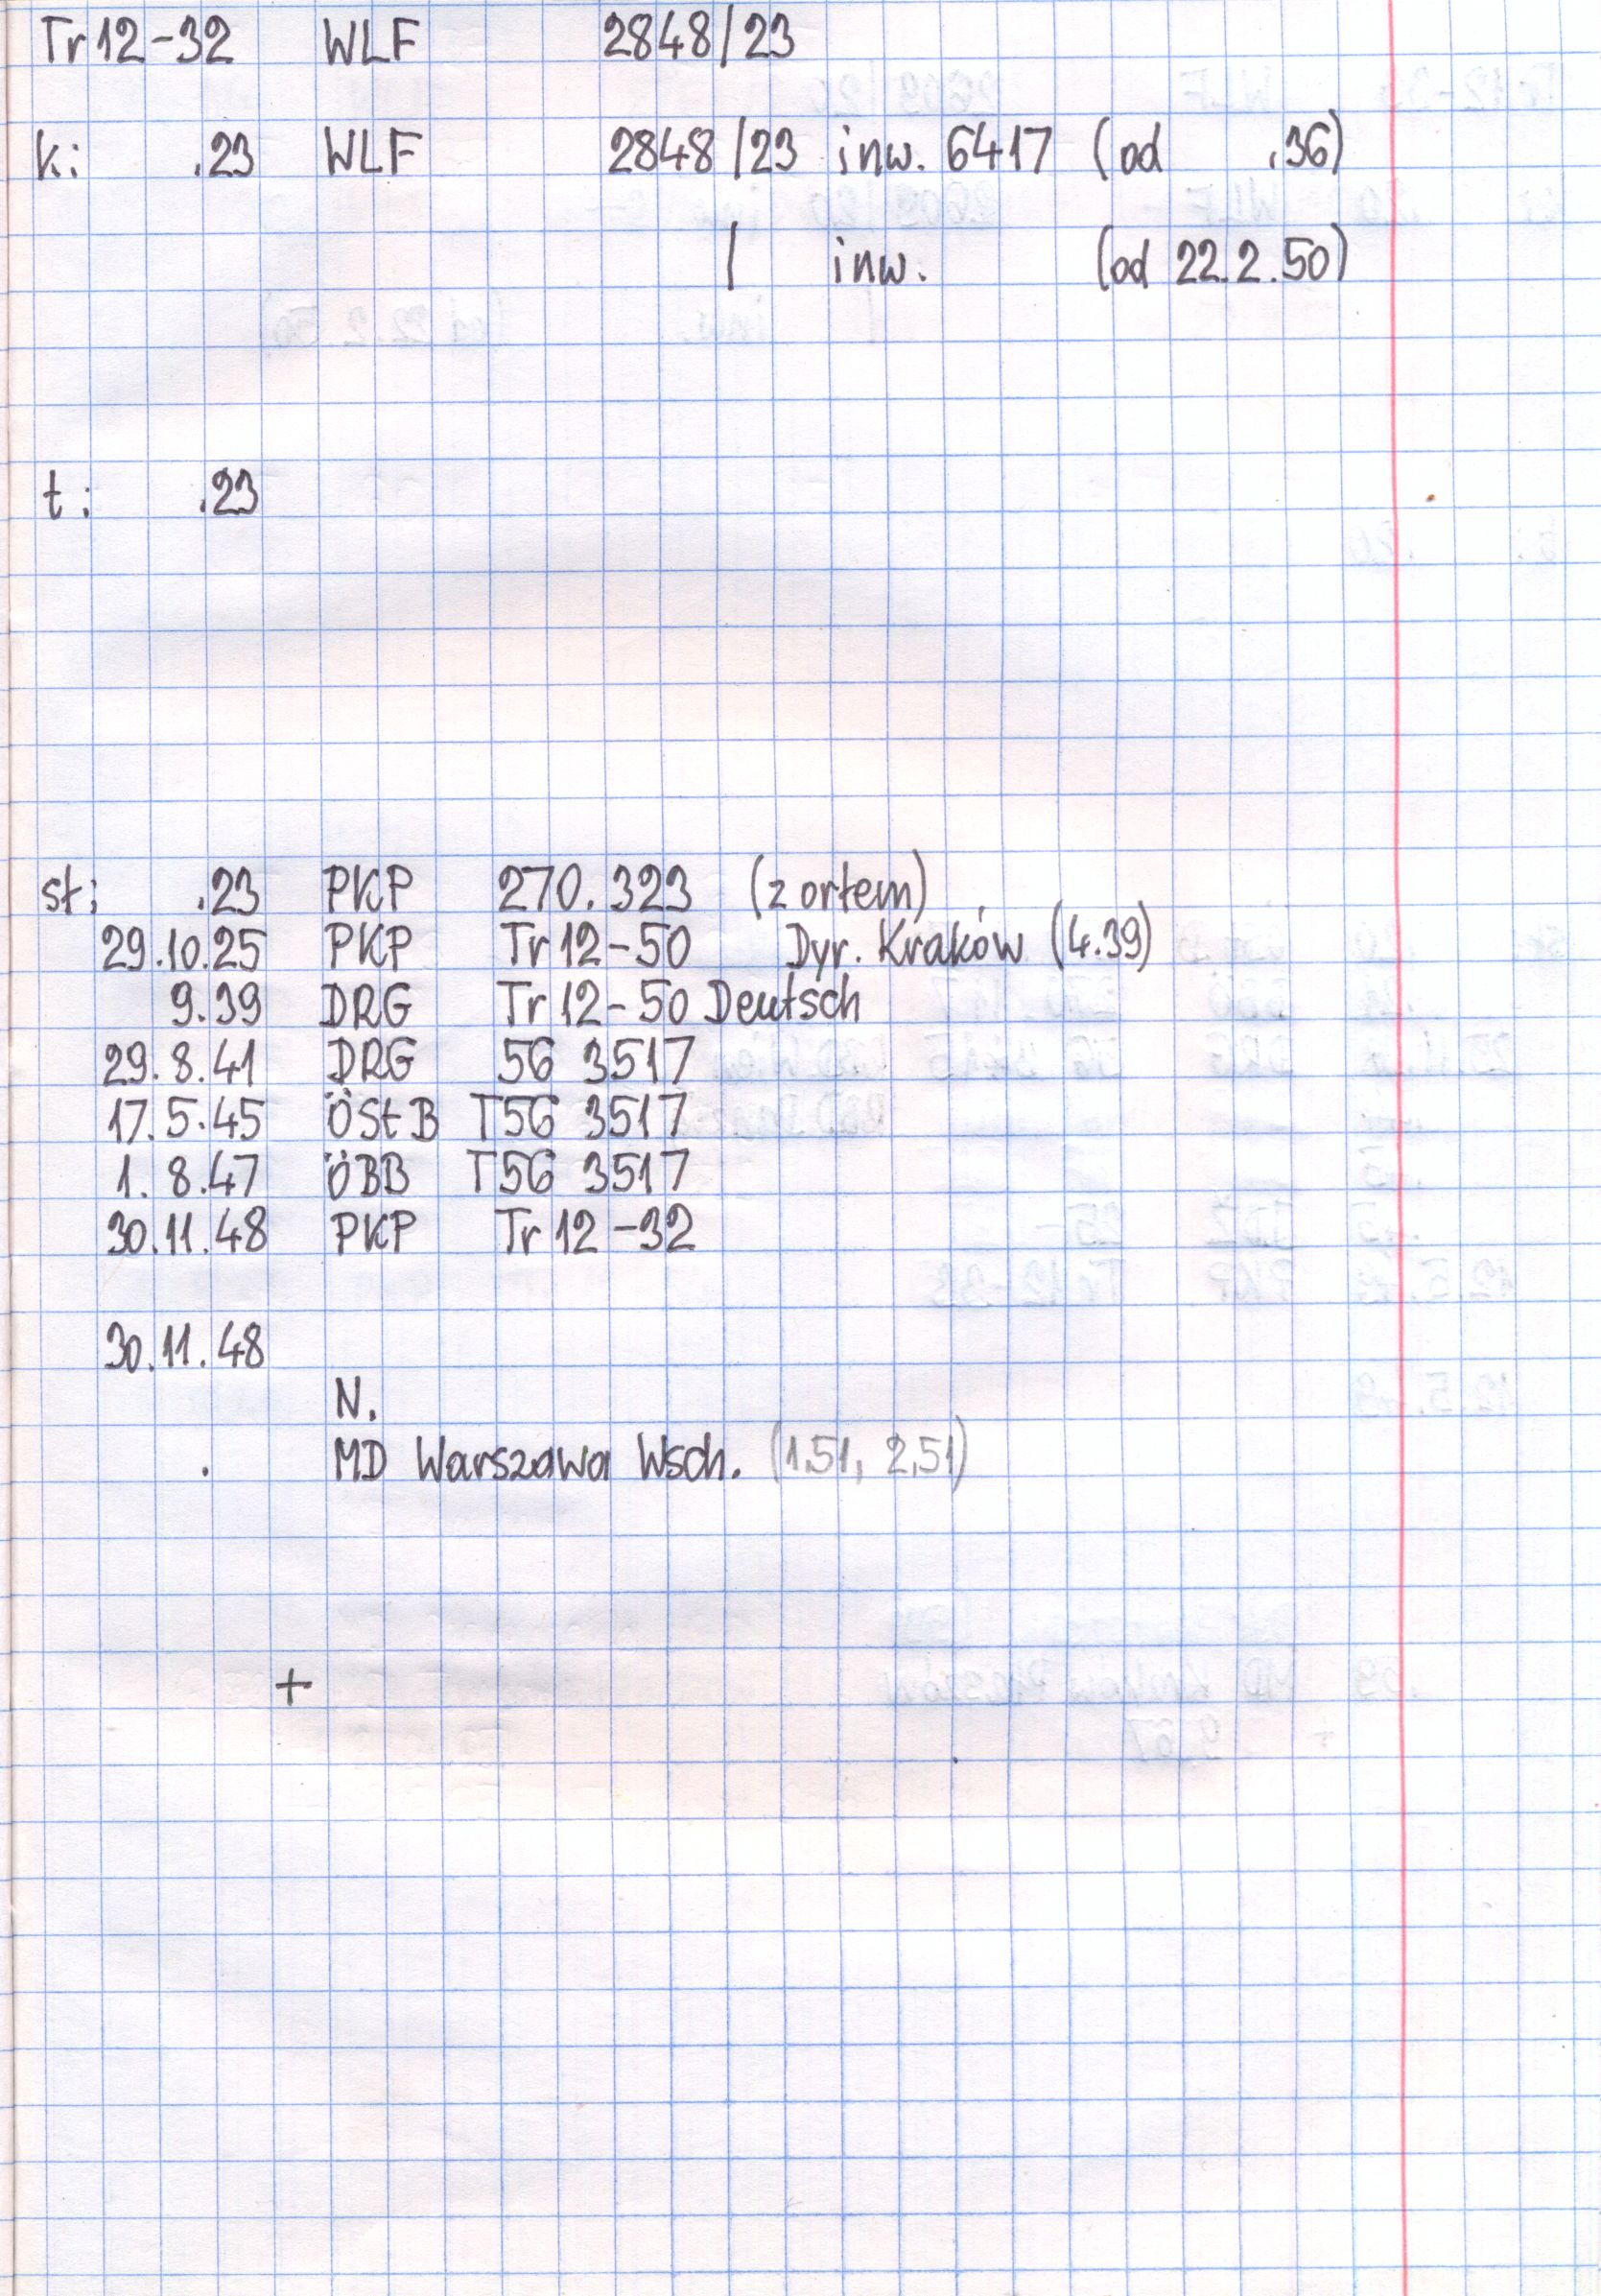 Tr 12-32 WLF 2848/23
k: .23 WLF 2848/23 inw. 6417 (od .36)
/ inw. (od 22.2.50)
t: .23
st: .23 PKP 270.323 (z ortem)
29.10.25 PKP Tr 12-50 Dyr. Kraków (4.39)
9.39 DRG Tr 12-50 Deutsch
29.8.41 DRG 56 3517
17.5.45 ÖStB T56 3517
1.8.47 ÖBB T56 3517
30.11.48 PKP Tr 12-32
30.11.48
N.
. MD Warszawa Wsch. (1.51, 2.51)
+